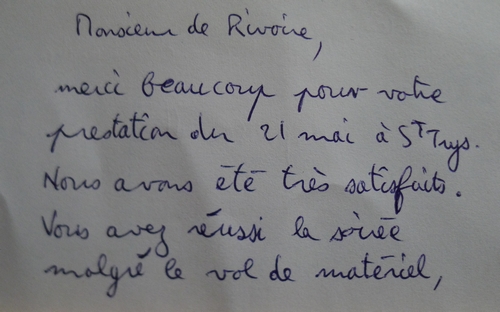 Monsieur de Rivoire,
merci beaucoup pour votre
prestation du 21 mai à St Trys.
Nous avons été très satisfaits.
Vous avez réussi la soirée
malgré le vol de matériel,